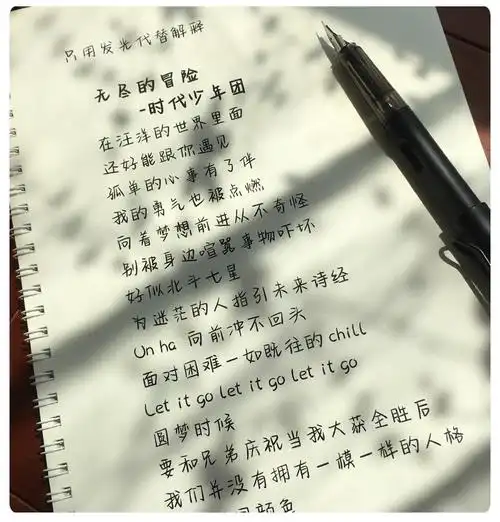 只用发光代替解释
无尽的冒险
-时代少年团
在汪洋的世界里面
还好能跟你遇见
孤单的心事有了伴
我的勇气也被点燃
向着梦想前进从不奇怪
别被身边喧嚣事物吓坏
好似北斗七星
为迷茫的人指引未来诗经
Un ha 向前冲不回头
面对困难一如既往的 chill
Let it go let it go let it go
圆梦时候
要和兄弟庆祝当我大获全胜后
我们并没有拥有一模一样的人格
颜色